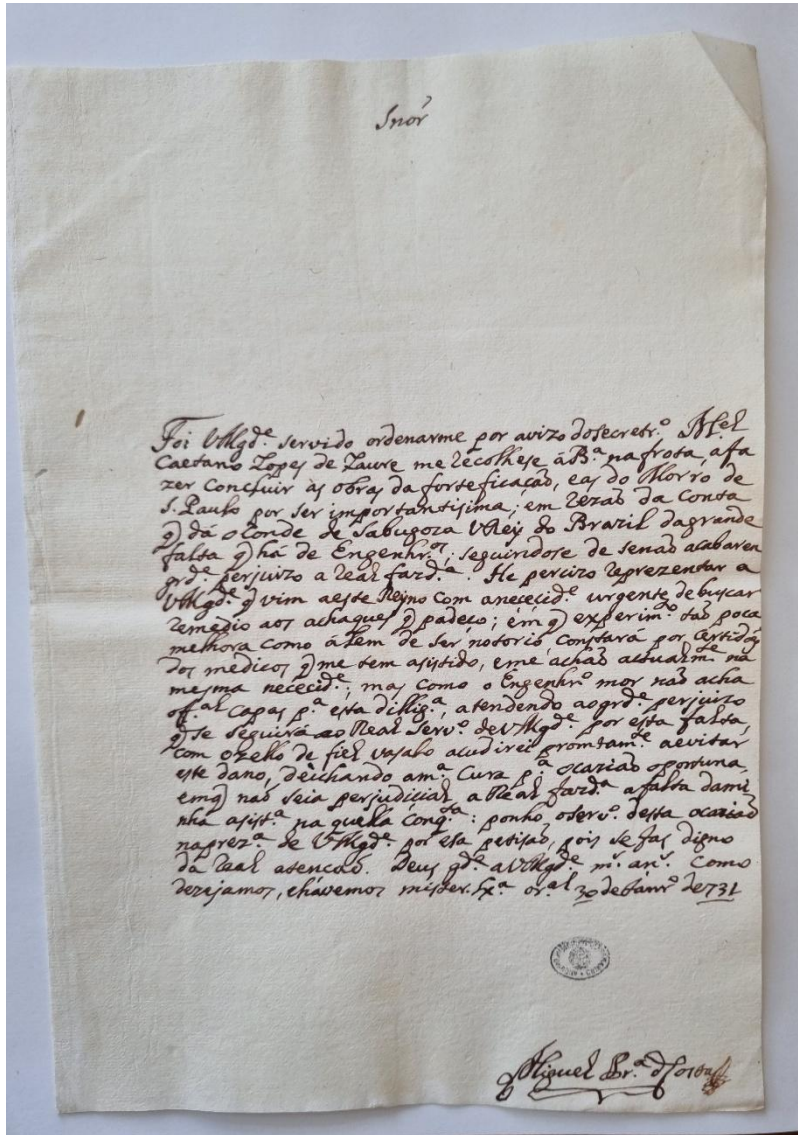 Snor̃
Foi VMgd.e servido ordenarme por avizo do secretr.o M.el
Caetano Lopes de Lavre me recolhese á B.a na frota, a fa
zer concluir ás obras da forteficação, e as do Morro de
S. Paulo por ser importantisima; em rezaõ da conta
q̃ dá o Conde de Sabugoza VRey do Brazil da grande
falta q̃ há de Engenhr.os; seguindose de senaõ acabarem
grd.e perjuizo a real fazd.a. He percizo reprezentar a
VMgd.e q̃ vim a este Reyno com a nececid.e urgente de buscar
remedio aos achaques q̃ padeço; em q̃ experim.to taõ poca
melhora como álem de ser notorio, constará por certidoẽs
dos medicos q̃ me tem asistido, e me achaõ actualm.te na
mesma nececid.e; mas como o Engenhr.o mor naõ acha
off.al capas p.a esta dillig.a, atendendo ao grd.e perjuizo
q̃ se seguirá ao Real Serv.o de VMgd.e por esta falta,
com o zello de fiel vasalo acudirei promtam.e a evitar
este dano, deichando a m.a cura p.a ocaziaõ oportuna,
em q̃ naõ seia perjudicial a Real fazd.a a falta da mi
nha asist.a na quella conq.ta: ponho o serv.o desta ocaziaõ
na prez.a de VMgd.e por esta petisaõ, pois se fas digno
da real atencaõ. Deus gd.e a VMgd.e m.s an.s como
dezejamos, e hávemos mister. Lx.a or.al 30 de Janr.o de 731
Miguel Pr.a da Costa